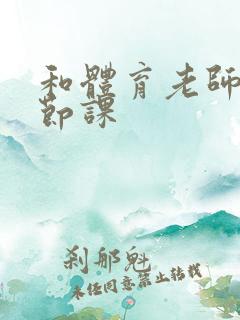 和體育老師
節課
剎那魁
未经同意禁止转载